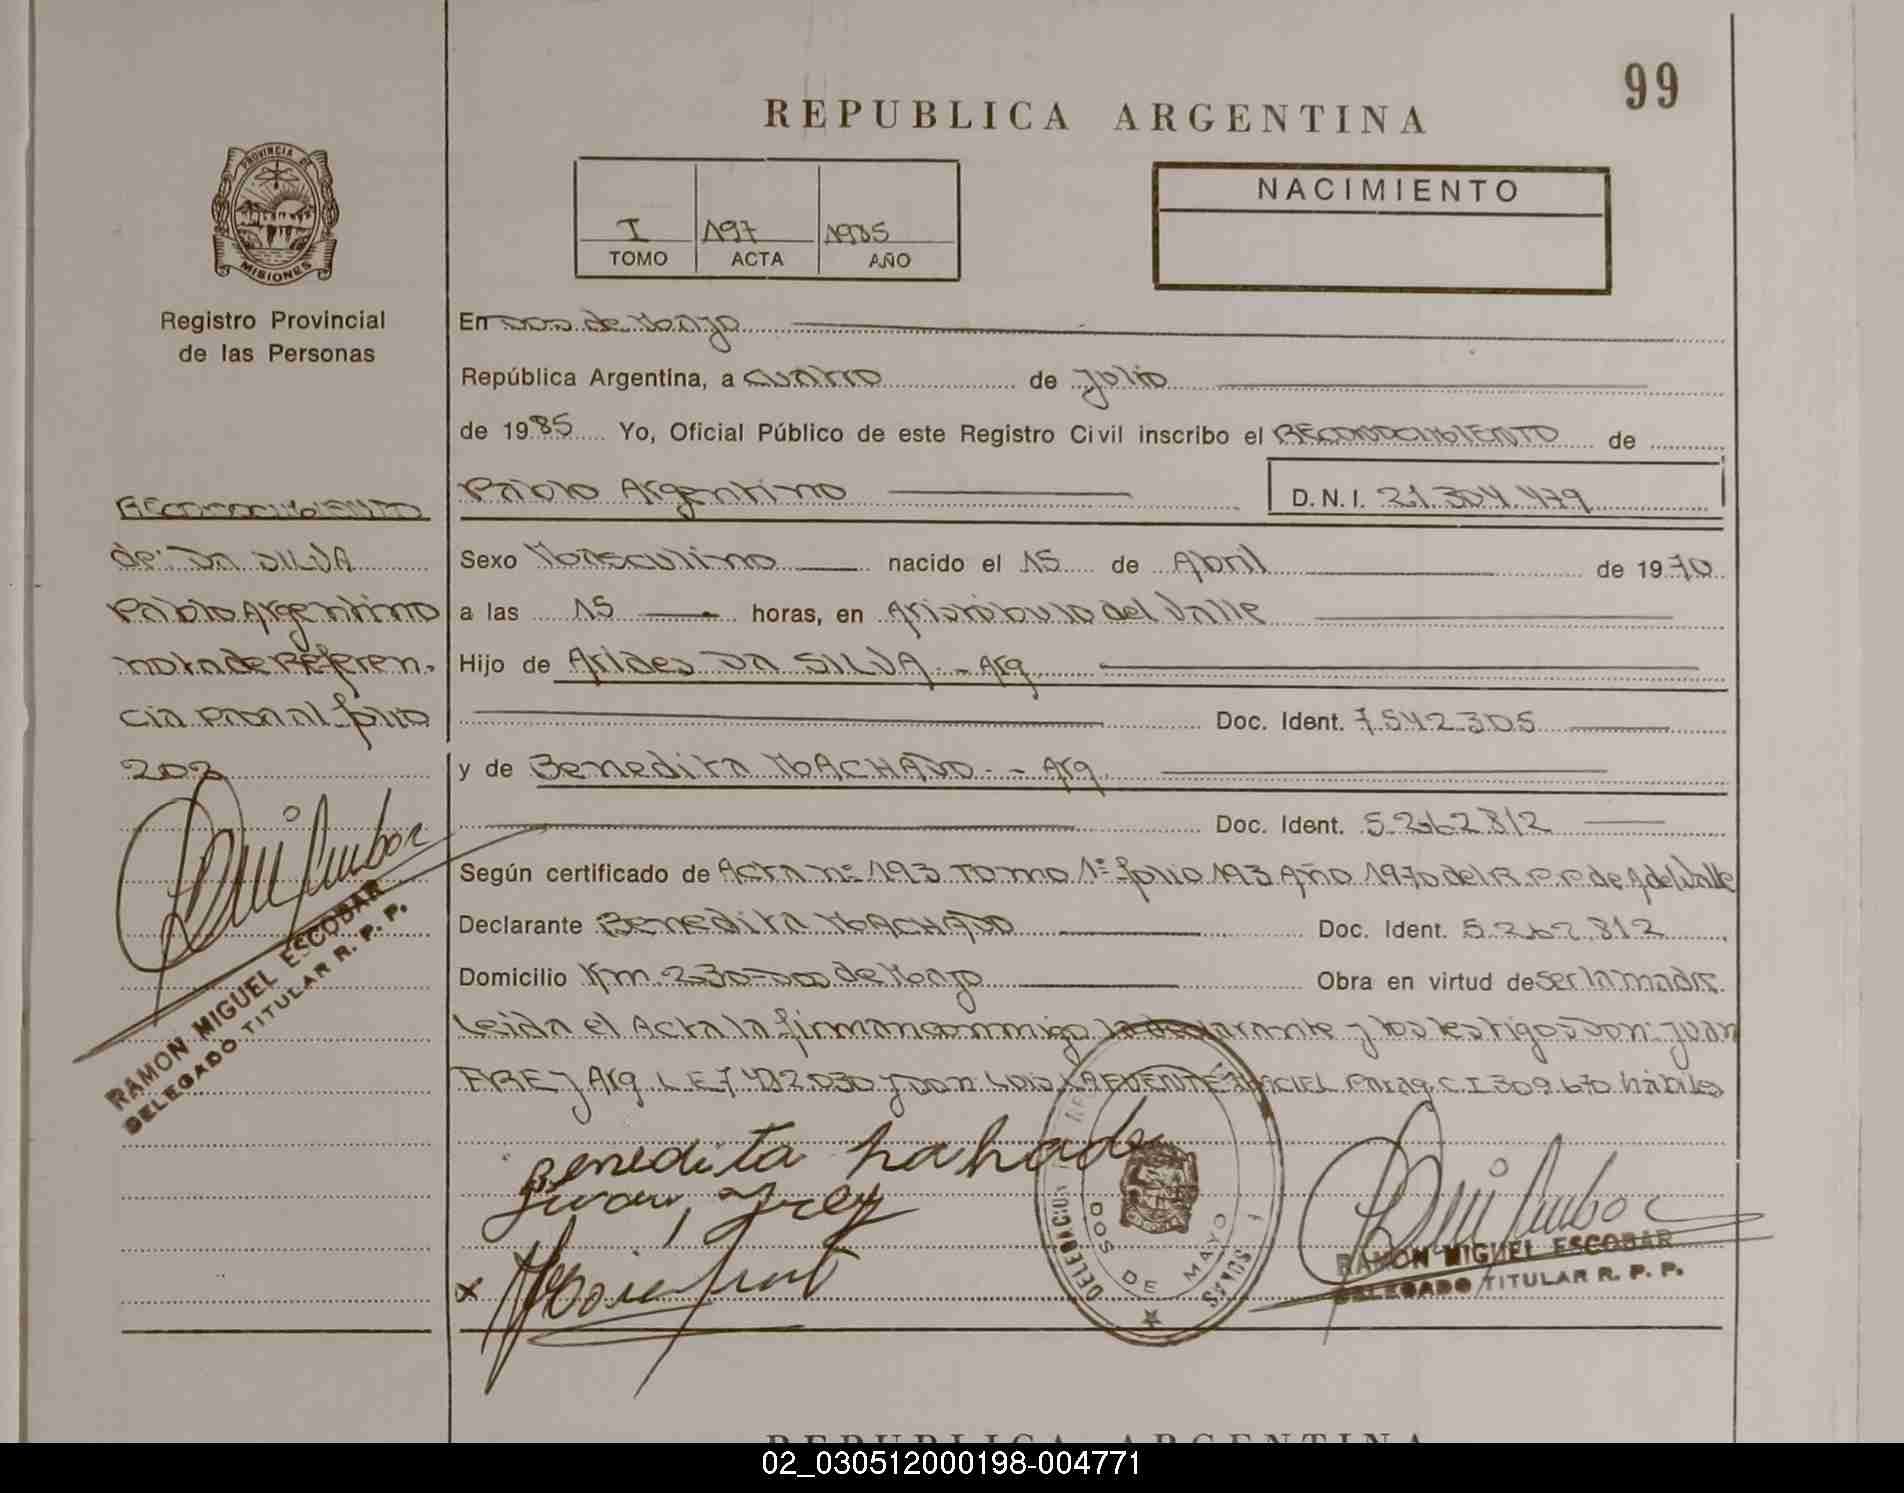 99
REPUBLICA ARGENTINA
PROVINCIA DE
MISIONES
I 197 1985
TOMO ACTA AÑO
NACIMIENTO
Registro Provincial
de las Personas
En Dos de Mayo
República Argentina, a cuatro de Julio
de 1985 Yo, Oficial Público de este Registro Civil inscribo el RECONOCIMIENTO de
Pablo Argentino D.N.I. 21.304.479
Sexo Masculino nacido el 15 de Abril de 1970
a las 15 horas, en Aristóbulo del Valle
Hijo de Arides DA SILVA.- Arg.
Doc. Ident. 7.542.305
y de Benedita MACHADO.- Arg.
Doc. Ident. 5.262.812
Según certificado de Acta nº 193 Tomo 1º folio 193 Año 1970 del R.P.P. de A del Valle
Declarante Benedita MACHADO Doc. Ident. 5.262.812
Domicilio Km. 230-Dos de Mayo Obra en virtud de ser la madre.
Leida el Acta la firman conmigo la declarante y los testigos Don: Juan
Arg. L.E. 7.482.030 y Don Luis LAFUENTE MACIEL Parag. C.I 309.670 hábiles
RECONOCIMIENTO
de: DA SILVA
Pablo Argentino
nota de Referen-
cia al folio
202
RAMON MIGUEL ESCOBAR
DELEGADO TITULAR R. P. P.
Benedita hahado
Juan
x
DOS DE MAYO
RAMON MIGUEL ESCOBAR
DELEGADO TITULAR R. P. P.
REPUBLICA ARGENTINA
02_030512000198-004771